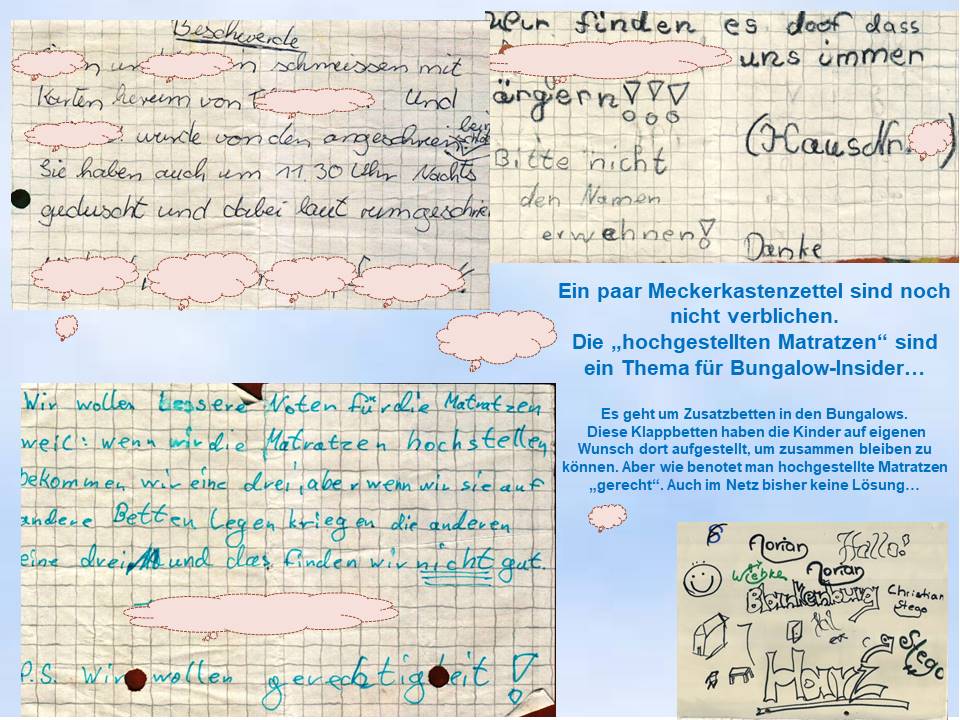 Beschwerde
n un n schmeissen mit
Karten herum von Und
wurde von den angeschrien
Sie haben auch um 11.30 Uhr Nachts
geduscht und dabei laut rumgeschrie
Wir finden es doof dass
uns immer
ärgern!!!
(Hausdn. )
Bitte nicht
den Namen
erwehnen!
Danke
Ein paar Meckerkastenzettel sind noch
nicht verblichen.
Die „hochgestellten Matratzen“ sind
ein Thema für Bungalow-Insider…
Es geht um Zusatzbetten in den Bungalows.
Diese Klappbetten haben die Kinder auf eigenen
Wunsch dort aufgestellt, um zusammen bleiben zu
können. Aber wie benotet man hochgestellte Matratzen
„gerecht“. Auch im Netz bisher keine Lösung…
Wir wollen bessere Noten für die Matratzen
weil: wenn wir die Matratzen hochstellen
bekommen wir eine drei, aber wenn wir sie auf
andere Betten legen kriegen die anderen
eine drei und das finden wir nicht gut.
P.S. Wir wollen gerechtigkeit!
Morian Hallo!
Wiebke Morian
Blankenburg Christian
Stego
Harz Stego